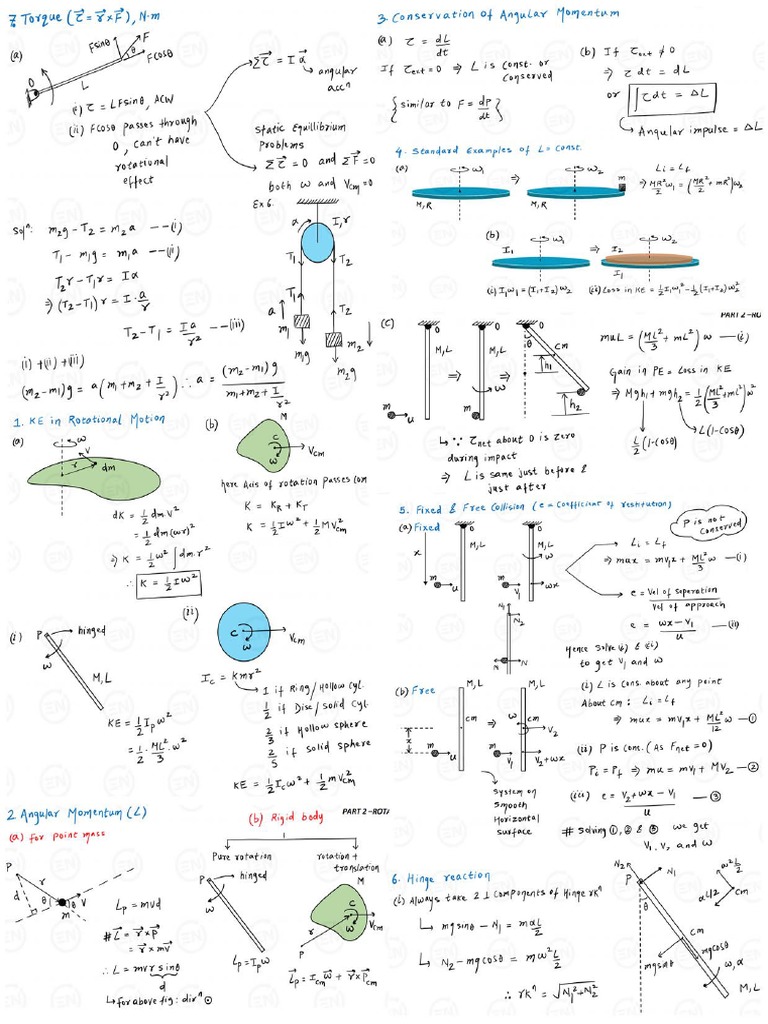 7. Torque (τ⃗ = r⃗ × F⃗), N·m
(a)
Fsinθ
F
θ
Fcosθ
O
L
(i) τ = LFsinθ, ACW
(ii) Fcosθ passes through
O, can't have
rotational
effect
Στ⃗ = I α⃗
angular
accⁿ
Static Equilibrium
Problems
Στ⃗ = 0 and ΣF⃗ = 0
both ω and Vcm = 0
Ex 6.
Solⁿ: m₂g - T₂ = m₂a --- (i)
T₁ - m₁g = m₁a --- (ii)
T₂r - T₁r = Iα
⇒ (T₂ - T₁) r = I · a/r
T₂ - T₁ = Ia/r² --- (iii)
(i) + (ii) + (iii)
(m₂ - m₁)g = a (m₁ + m₂ + I/r²) ∴ a = (m₂ - m₁)g / (m₁ + m₂ + I/r²)
a
I, r
T₁
T₂
T₁
T₂
a
m₁
m₂
m₁g
m₂g
1. KE in Rotational Motion
(a)
ω
v
r
dm
dK = ½ dm.V²
= ½ dm (ωr)²
⇒ K = ½ ω² ∫dm.r²
∴ K = ½ I ω²
(b)
M
C
ω
Vcm
here Axis of rotation passes com
K = K_R + K_T
K = ½ I ω² + ½ M V²cm
(i)
P
hinged
ω
M, L
KE = ½ I_P ω²
= ½ · ML²/3 · ω²
(ii)
C
ω
Vcm
I_c = kmr²
1 if Ring/Hollow Cyl.
½ if Disc/solid Cyl.
2/3 if Hollow sphere
2/5 if solid sphere
KE = ½ I_c ω² + ½ mV²cm
2. Angular Momentum (L)
(a) for point mass
P
r
d
θ
θ
V
m
L_P = mvd
# L⃗ = r⃗ × p⃗
= r⃗ × mv⃗
∴ L = mv r sinθ
d
↳ for above fig: dirⁿ ⊙
(b) Rigid body
PART 2 - ROTA
Pure rotation
P
hinged
ω
L_P = I_P ω
rotation +
translation
M
C
ω
Vcm
P
r
L⃗_P = I_cm ω⃗ + r⃗ × P⃗_cm
3. Conservation of Angular Momentum
(a) τ = dL/dt
If τext = 0 ⇒ L is const. or
conserved
{ similar to F = dp/dt }
(b) If τext ≠ 0
⇒ τ dt = dL
or ∫τ dt = ΔL
↳ Angular impulse = ΔL
4. Standard Examples of L = Const.
(a)
ω₁
⇒
ω₂
m
M, R
M, R
L_i = L_f
⇒ MR²/2 ω₁ = (MR²/2 + mR²) ω₂
(b)
I₁
ω₁
⇒
I₂
ω₂
I₁
(i) I₁ω₁ = (I₁ + I₂) ω₂
(ii) Loss in KE = ½ I₁ω₁² - ½ (I₁ + I₂) ω₂²
PART 2 - RO
(c)
O
M, L
m
u
⇒
O
M, L
ω
m
⇒
O
θ
cm
h₁
h₂
muL = (ML²/3 + mL²) ω --- (i)
Gain in PE = Loss in KE
⇒ Mgh₁ + mgh₂ = ½ (ML²/3 + mL²) ω²
L/2 (1 - cosθ)
L (1 - cosθ)
↳ ∵ τnet about O is zero
during impact
⇒ L is same just before &
just after
5. Fixed & Free Collision (e = Coefficient of restitution)
(a) Fixed
M, L
M, L
x
m
u
ω
V₁
ωx
N₁
N₂
N
N
P is not
conserved
L_i = L_f
⇒ mux = mv₁x + ML²/3 ω --- (i)
e = Vel of seperation / Vel of approach
e = (ωx - V₁)/u --- (ii)
Hence solve (i) & (ii)
to get V₁ and ω
(b) Free
M, L
M, L
cm
x
m
u
⇒
ω
cm
V₂
m
V₁
V₂ + ωx
System on
Smooth
Horizontal
surface
(i) L is cons. about any point
About cm: L_i = L_f
⇒ mux = mv₁x + ML²/12 ω — ①
(ii) P is cons. (As Fnet = 0)
P_i = P_f ⇒ mu = mv₁ + MV₂ — ②
(iii) e = (V₂ + ωx - V₁)/u — ③
# Solving ①, ② & ③ we get
V₁, V₂ and ω
6. Hinge reaction
(i) Always take 2 ⊥ Components of Hinge rxⁿ
↳ mgsinθ - N₁ = mαL/2
↳ N₂ - mgcosθ = mω²L/2
∴ rxⁿ = √(N₁² + N₂²)
N₂
P
N₁
θ
ω²L/2
αL/2
cm
cm
mgsinθ
mgcosθ
ω, α
M, L